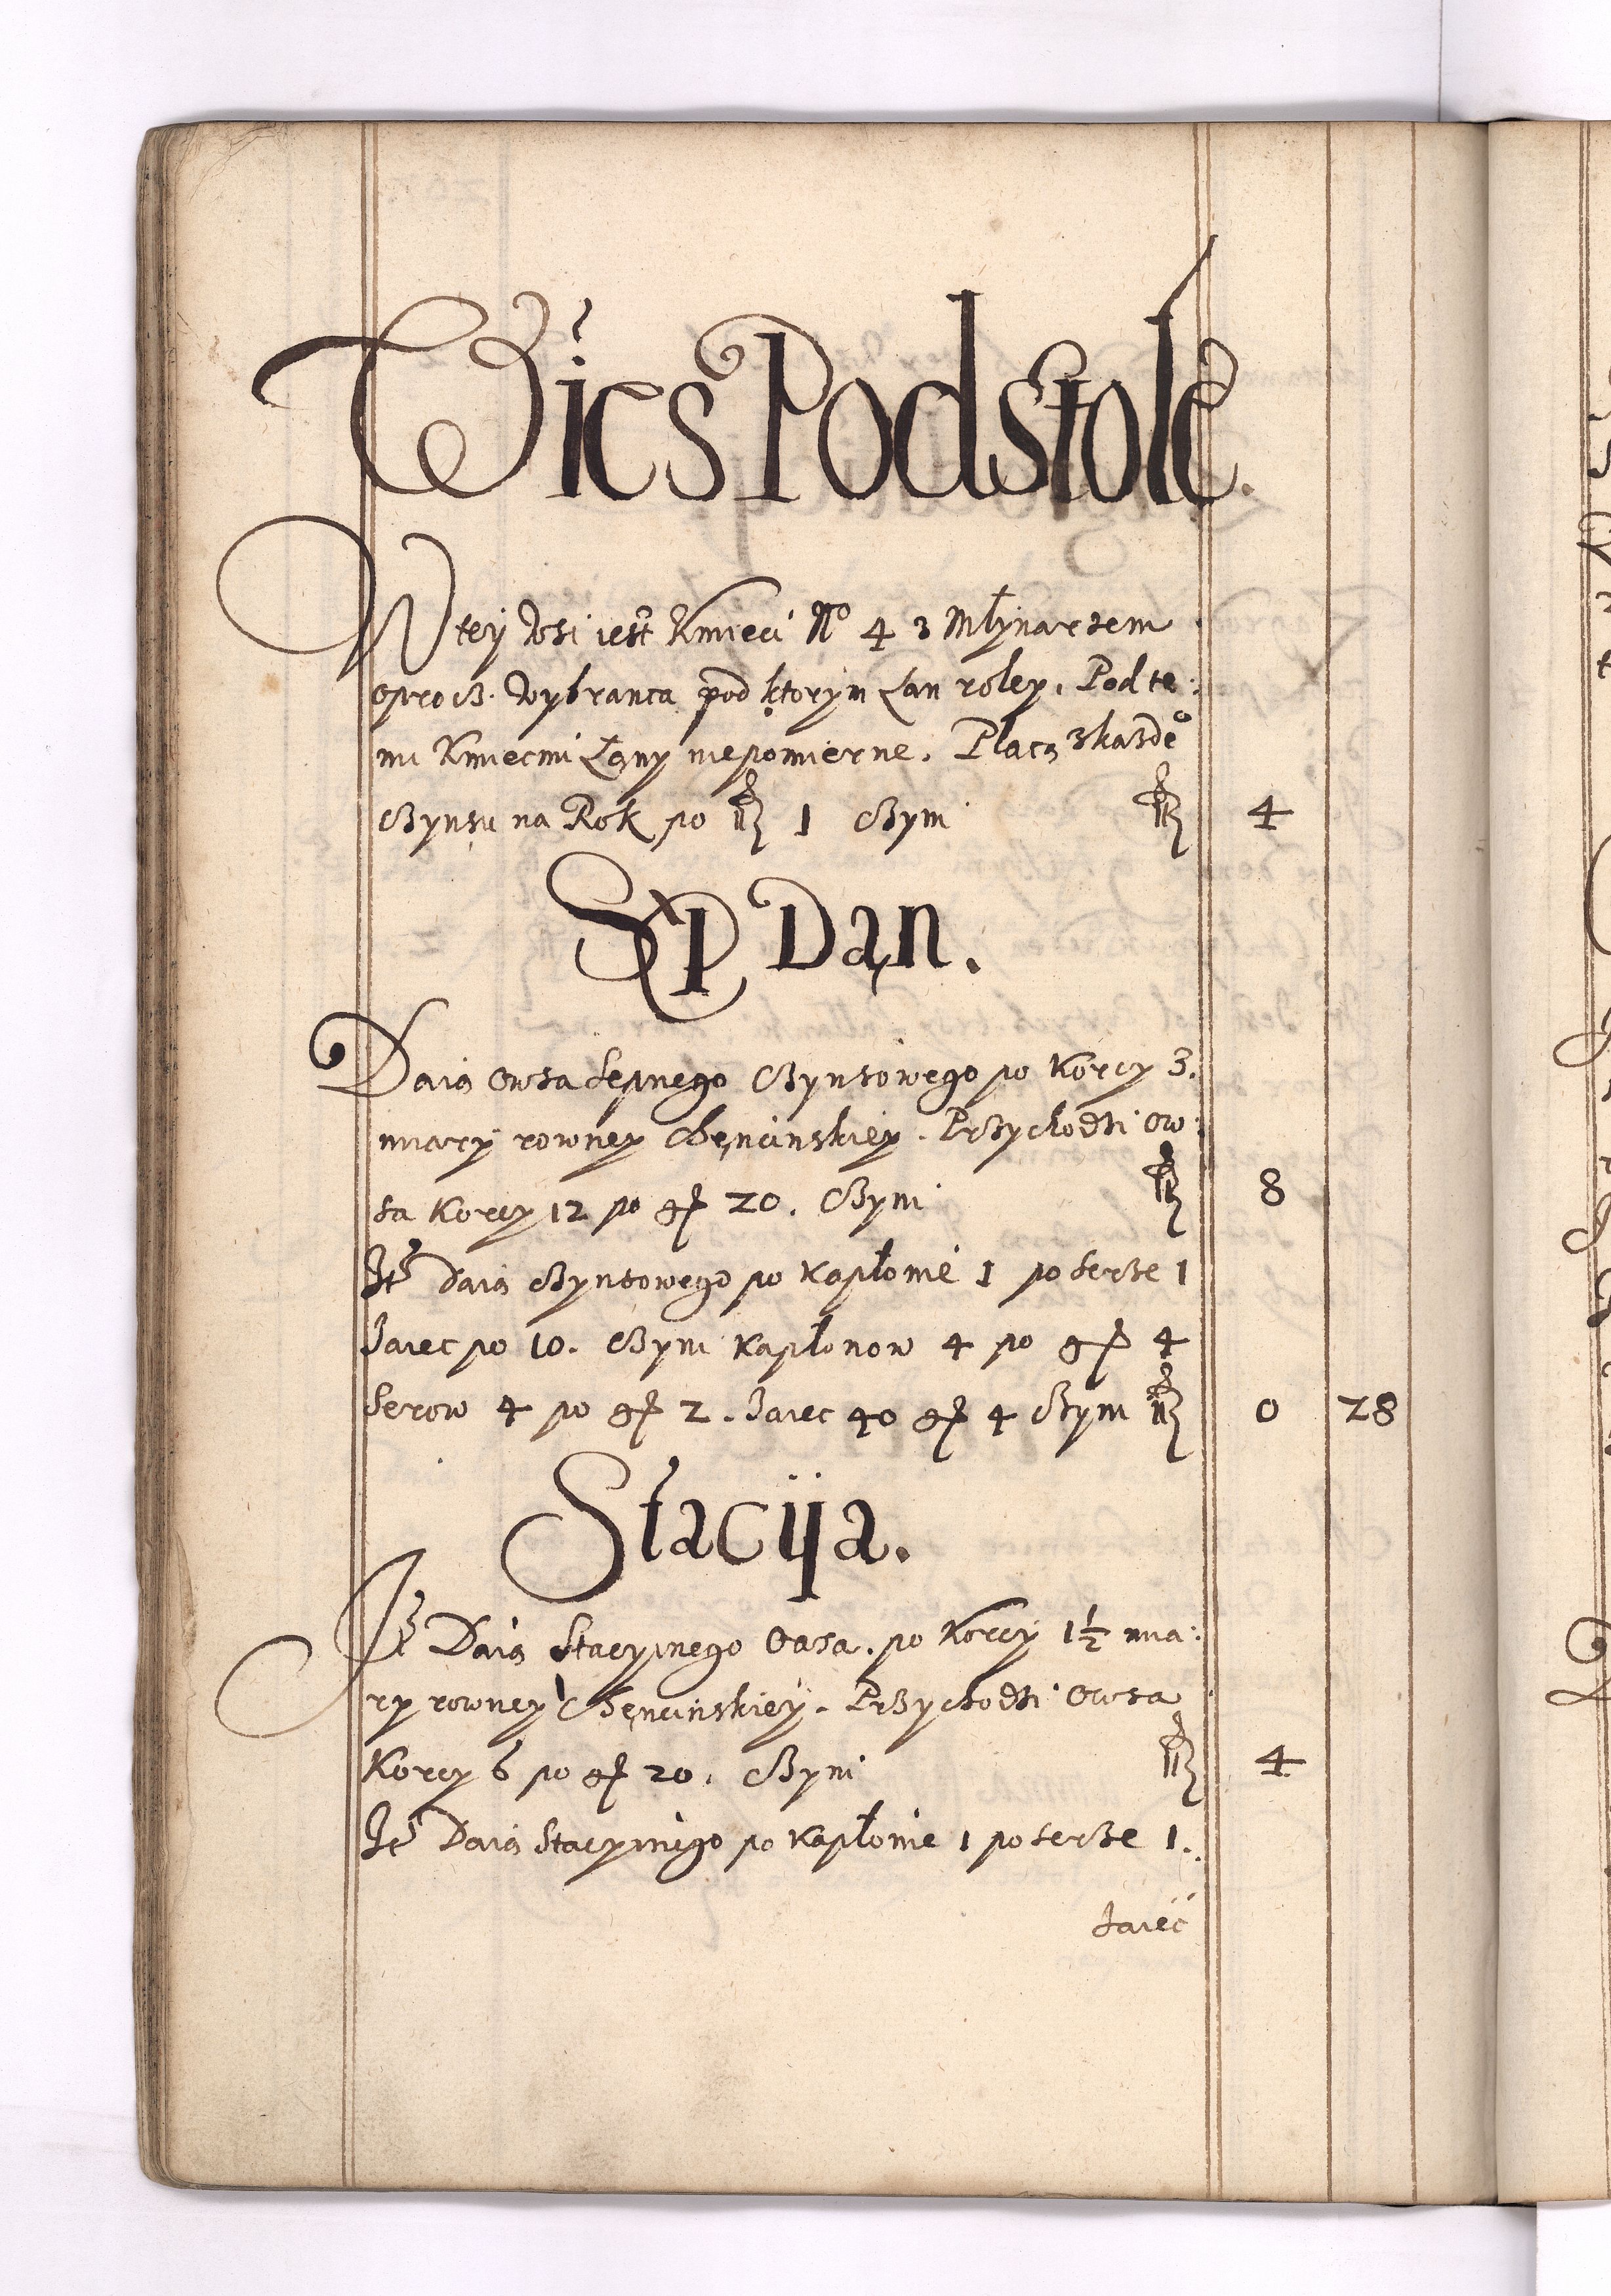 Wieś Podstole.
W tey wsi iest Kmieci No 4 z Młynarzem
oprocz Wybranca pod ktorym Łan roley. Pod te:
mi Kmiecmi Łany niepomierne. Płacą zkażdeo
Czynszu na Rok po fl 1 Czyni fl 4
Sep Dan.
Daią Owsa Sepnego Czynszowego po Korcy 3.
miary rowney Chęncinskiey. Przychodzi Ow:
sa Korcy 12 po gr 20. Czyni fl 8
Ite Daią Czynszowego po Kapłonie 1 po Serze 1
Iaiec po 10. Czyni Kapłonow 4 po gr 4
Serow 4 po gr 2. Iaiec 40 gr 4 Czyni fl 0 28
Stacija.
Ite Daią Stacyinego Owsa. po Korcy 1½ mia:
ry rowney Chęncinskiey. Przychodzi Owsa
Korcy 6 po gr 20. Czyni fl 4
Ite Daią Stacyinego po Kapłonie 1 po Serze 1.
Iaiec